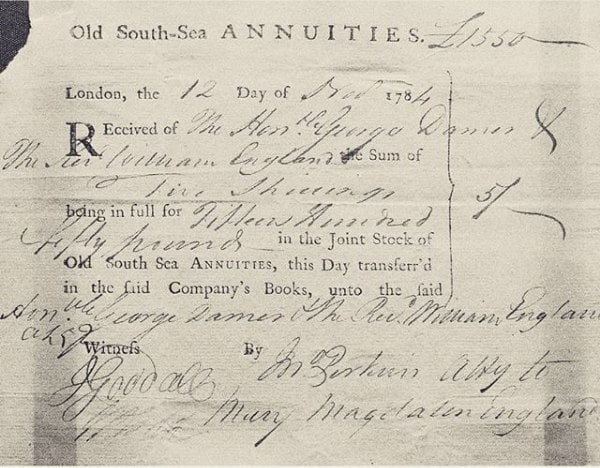 Old South-Sea ANNUITIES. £1550
London, the 12 Day of Nov 1784
REceived of The Honble George Damer &
The Revd William England the Sum of
Five Shillings 5/
being in full for Fifteen Hundred
fifty pounds in the Joint Stock of
Old South Sea ANNUITIES, this Day transferr'd
in the said Company's Books, unto the said
Honble George Damer & the Revd William England
Witness By Jno Perkins Atty to
J Goodall
Mary Magdalen England